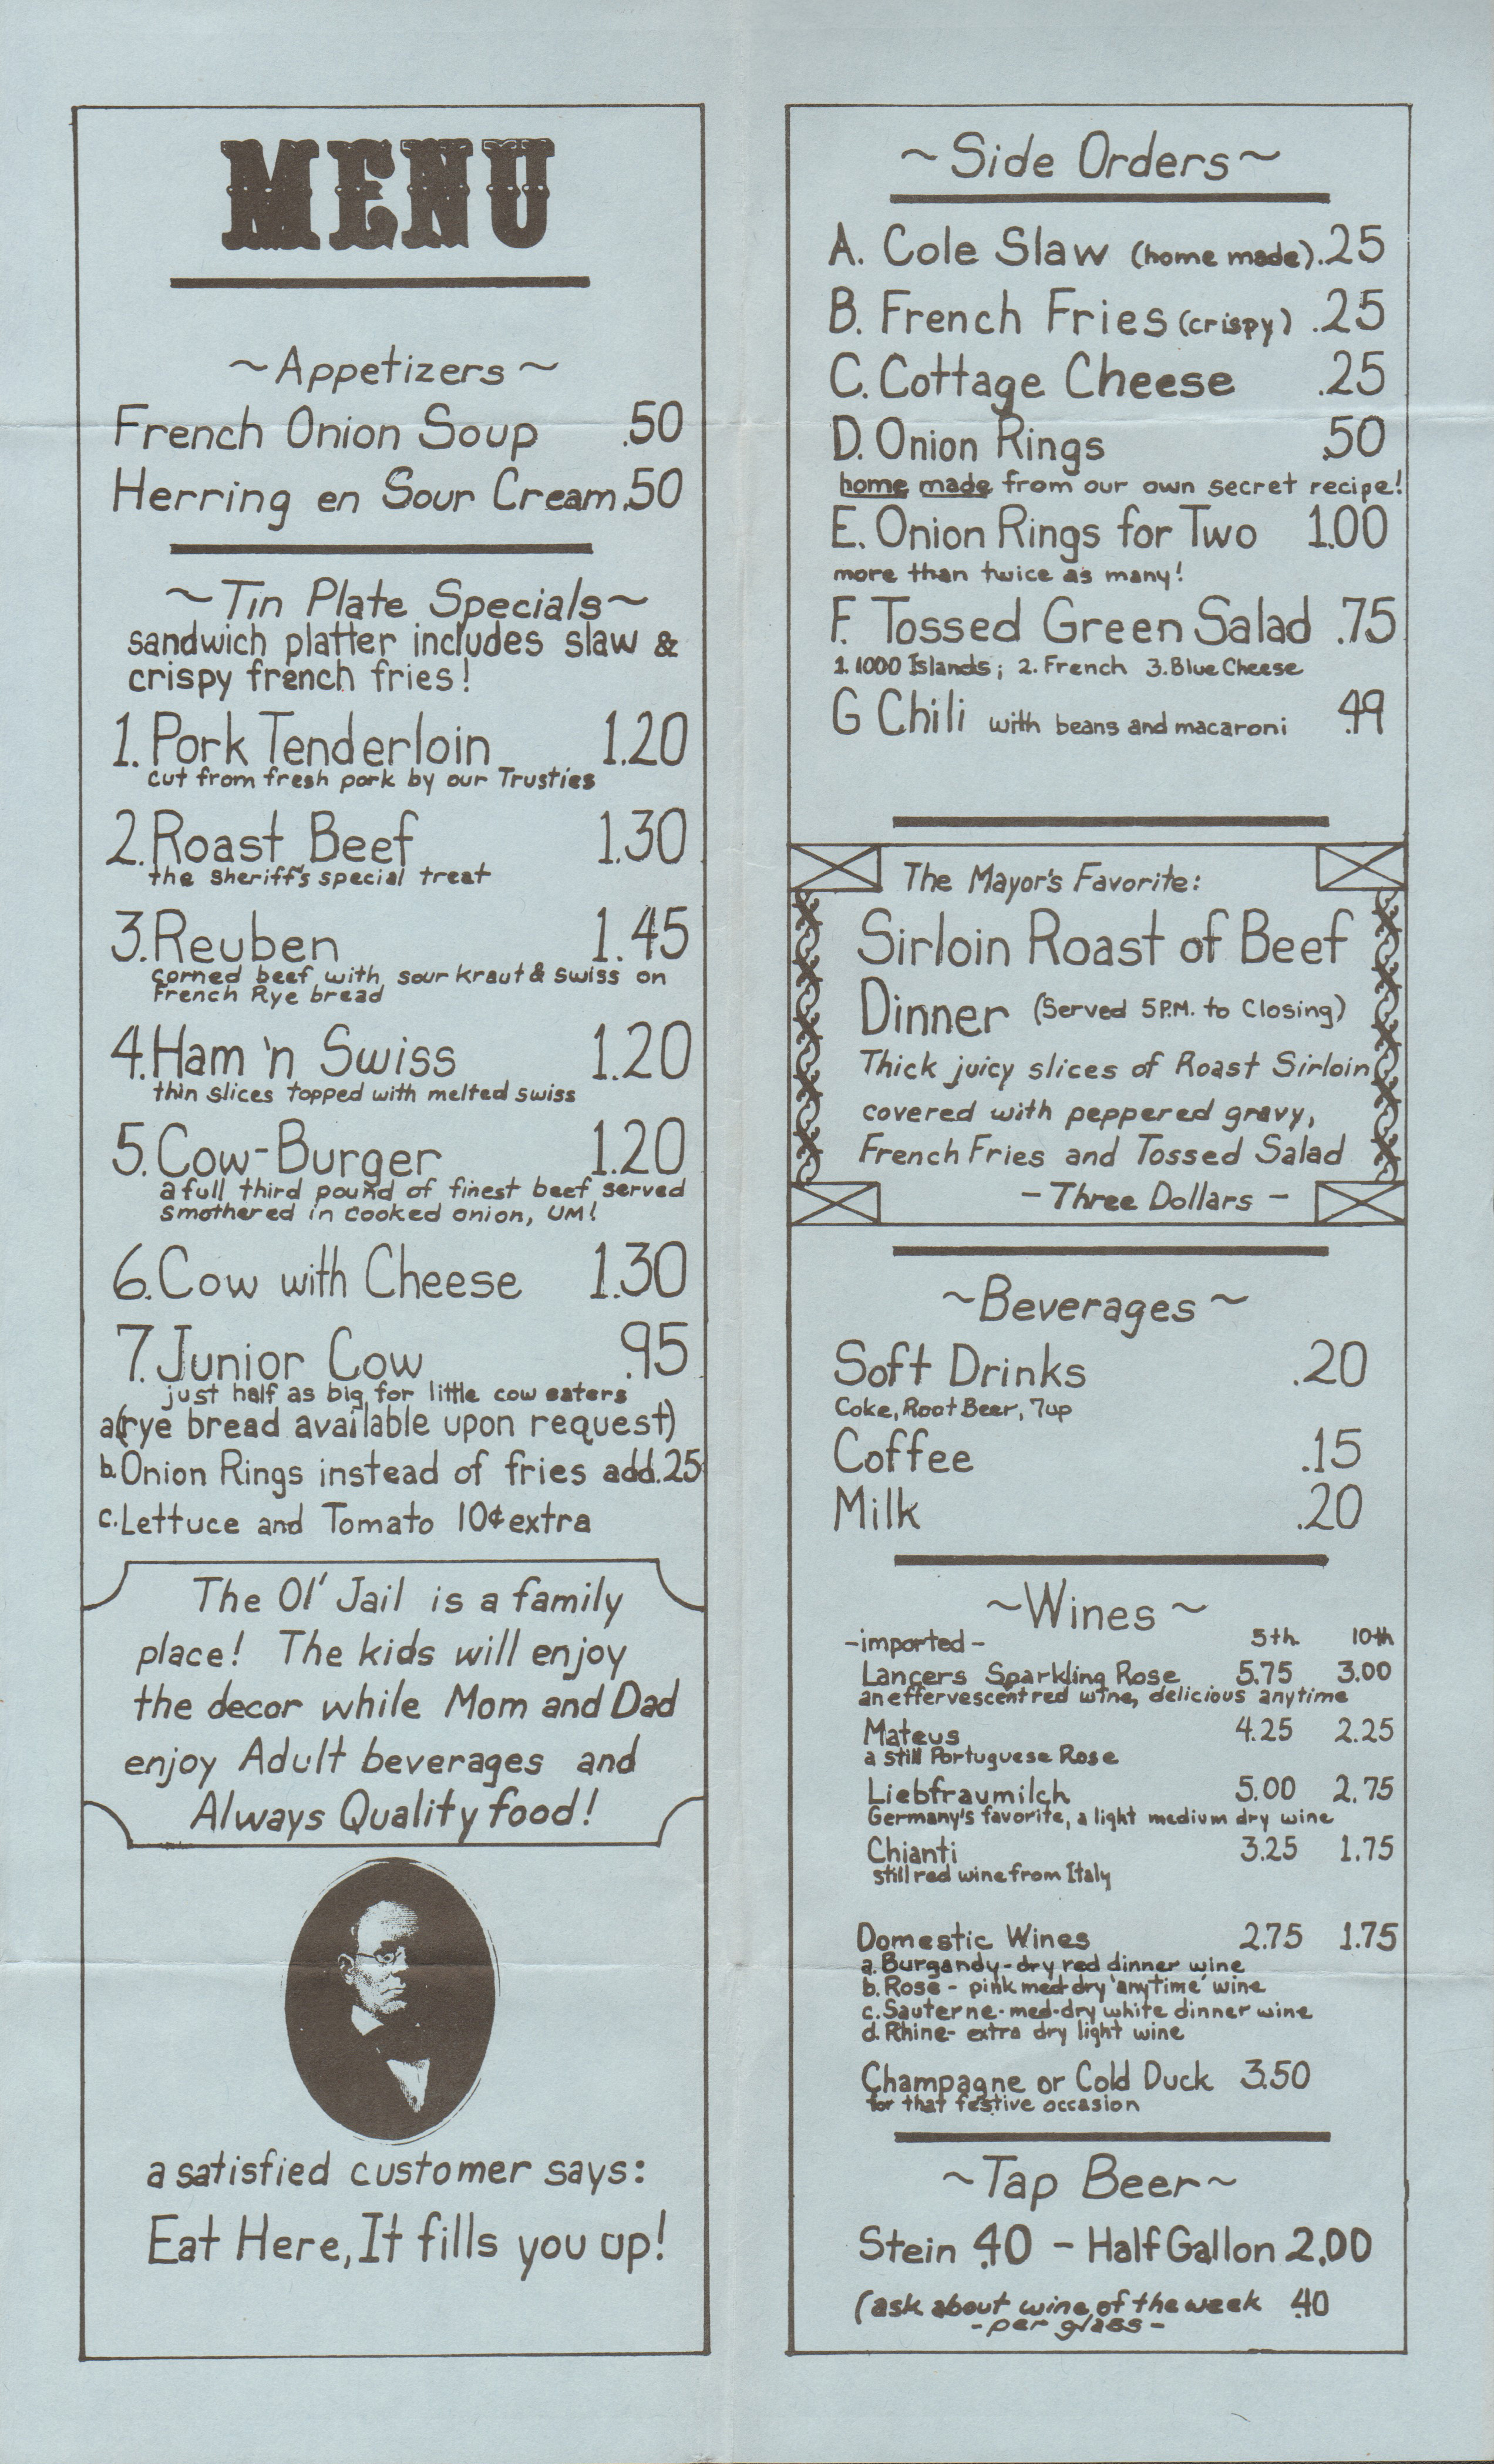 MENU
~Appetizers~
French Onion Soup .50
Herring en Sour Cream .50
~Tin Plate Specials~
sandwich platter includes slaw &
crispy french fries!
1. Pork Tenderloin 1.20
cut from fresh pork by our Trusties
2. Roast Beef 1.30
the sheriff's special treat
3. Reuben 1.45
corned beef with sour kraut & swiss on
French Rye bread
4. Ham 'n Swiss 1.20
thin slices topped with melted swiss
5. Cow-Burger 1.20
a full third pound of finest beef served
smothered in cooked onion, UM!
6. Cow with Cheese 1.30
7. Junior Cow .95
just half as big for little cow eaters
a(rye bread available upon request)
b. Onion Rings instead of fries add .25
c. Lettuce and Tomato 10¢ extra
The Ol' Jail is a family
place! The kids will enjoy
the decor while Mom and Dad
enjoy Adult beverages and
Always Quality food!
a satisfied customer says:
Eat Here, It fills you up!
~Side Orders~
A. Cole Slaw (home made) .25
B. French Fries (crispy) .25
C. Cottage Cheese .25
D. Onion Rings .50
home made from our own secret recipe!
E. Onion Rings for Two 1.00
more than twice as many!
F. Tossed Green Salad .75
1. 1000 Islands; 2. French 3. Blue Cheese
G Chili with beans and macaroni .49
The Mayor's Favorite:
Sirloin Roast of Beef
Dinner (Served 5P.M. to Closing)
Thick juicy slices of Roast Sirloin
covered with peppered gravy,
French Fries and Tossed Salad
- Three Dollars -
~Beverages~
Soft Drinks .20
Coke, Root Beer, 7up
Coffee .15
Milk .20
~Wines~
-imported- 5th. 10th
Lancers Sparkling Rose 5.75 3.00
an effervescent red wine, delicious anytime
Mateus 4.25 2.25
a still Portuguese Rose
Liebfraumilch 5.00 2.75
Germany's favorite, a light medium dry wine
Chianti 3.25 1.75
still red wine from Italy
Domestic Wines 2.75 1.75
a. Burgandy - dry red dinner wine
b. Rosé - pink med-dry 'anytime' wine
c. Sauterne - med-dry white dinner wine
d. Rhine - extra dry light wine
Champagne or Cold Duck 3.50
for that festive occasion
~Tap Beer~
Stein .40 - Half Gallon 2.00
(ask about wine of the week .40
- per glass -